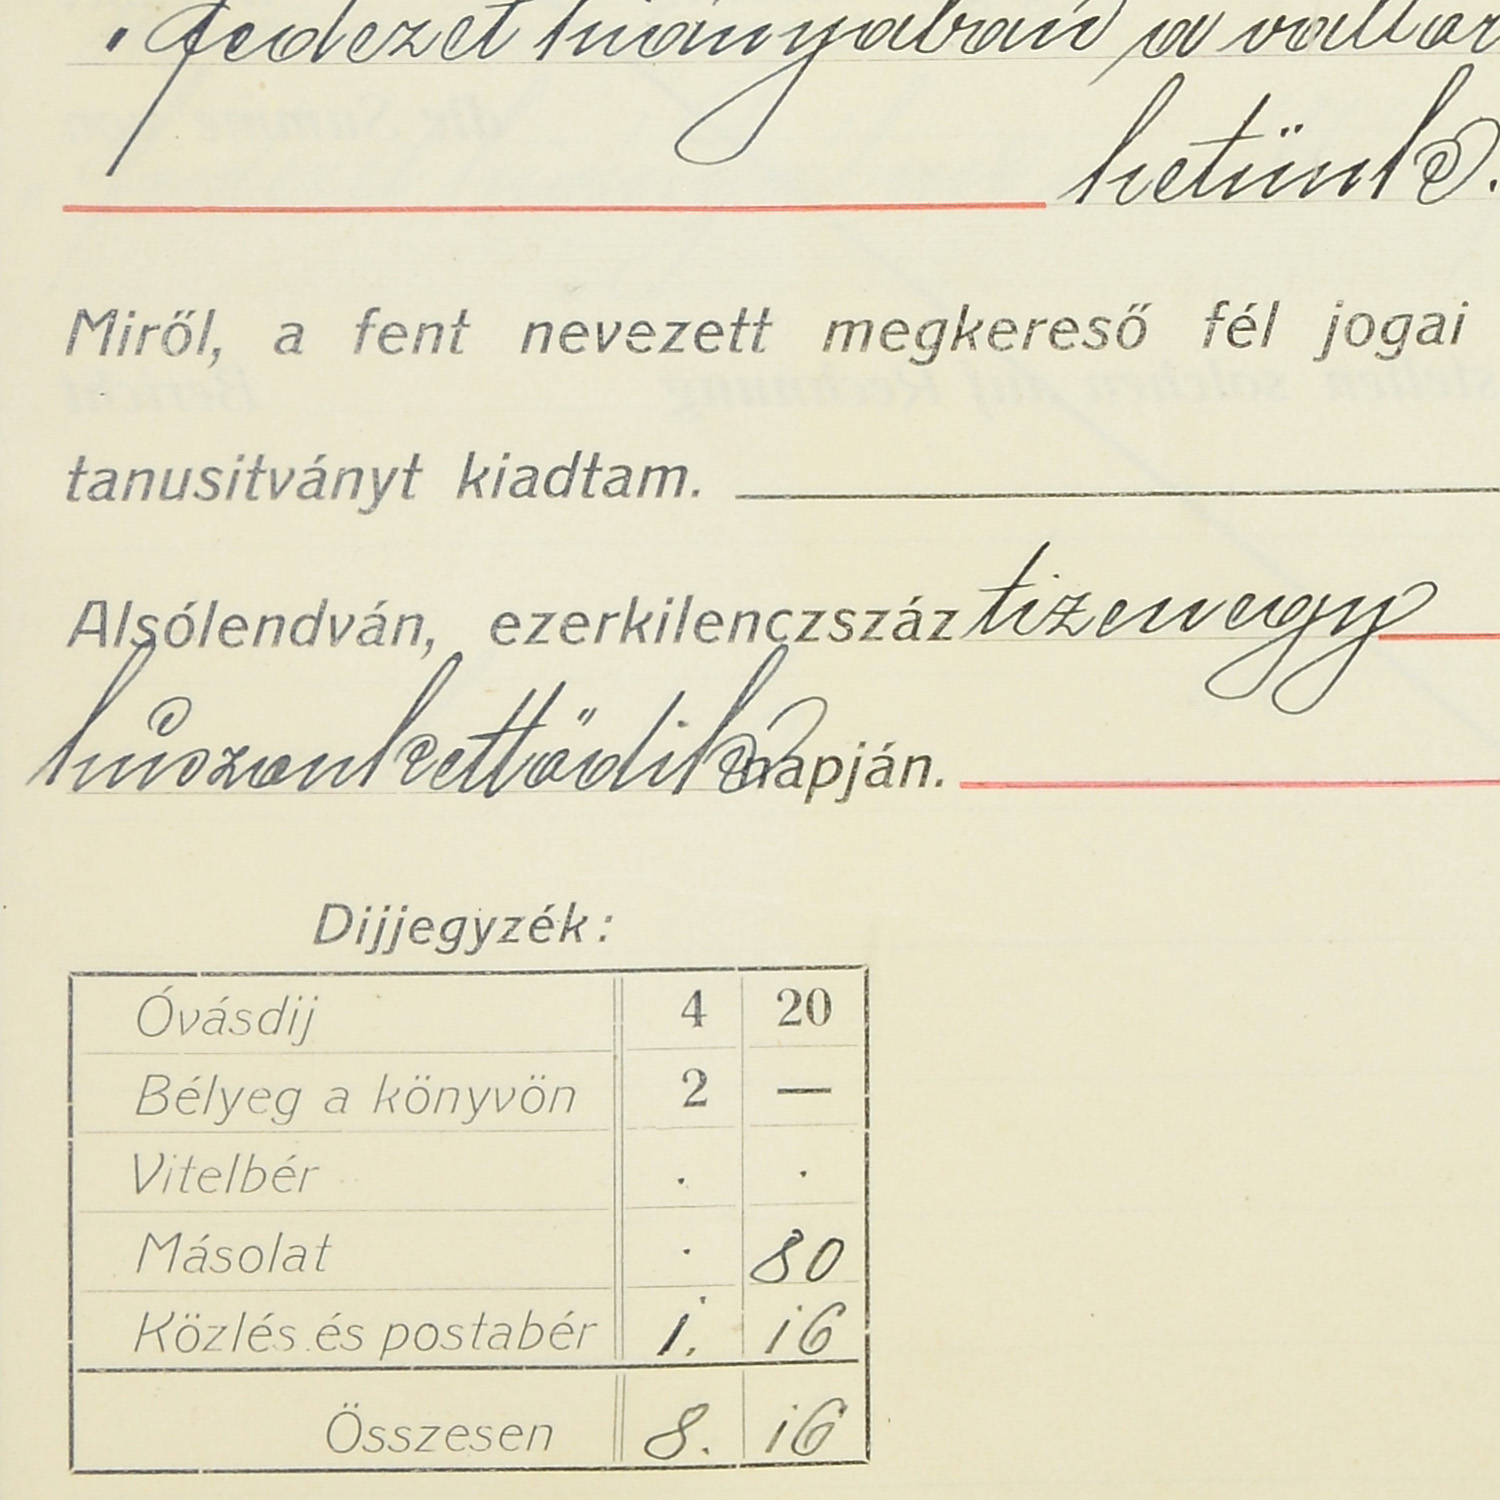 „fedezet hiányában a váltót
hetünk.
Miről, a fent nevezett megkereső fél jogai
tanusitványt kiadtam.
Alsólendván, ezerkilenczszáz tizenegy
húszonkettődik napján.
Dijjegyzék:
Óvásdij 4 20
Bélyeg a könyvön 2 —
Vitelbér . .
Másolat . 80
Közlés és postabér 1. 16
Összesen 8. 16